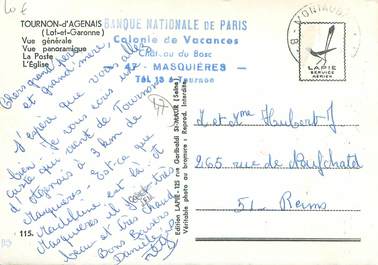 10 €
TOURNON-d'AGENAIS
(Lot-et-Garonne)
Vue générale
Vue panoramique
La Poste
L'Église
BANQUE NATIONALE DE PARIS
Colonie de Vacances
Château du Bosc
47 - MASQUIÈRES
Tél 13 à Tournon
MONTAUBAN
LAPIE
SERVICE
AÉRIEN
Chers grand-père
et grand'mère,
J'espère que vous allez
bien. Je vous écris une
carte qui vient de Tournon
d'Agenais à 3 km de
Masquières - Est-ce que
Madeleine est là ? A
Masquières il fait très
beau et très chaud
Bons Baisers
Edition LAPIE - 115 rue Garibaldi St-MAUR (Seine)
Véritable photo au bromure : Reprod. interdite
Mr et Mme Humbert J
265 rue de Neufchatel
51 - Reims
115.